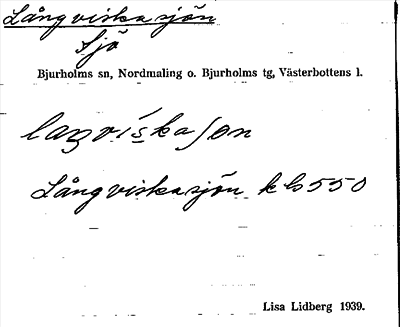 Långviskasjön
Sjö
Bjurholms sn, Nordmaling o. Bjurholms tg, Västerbottens l.
Långviskasjön kb 550
Lisa Lidberg 1939.